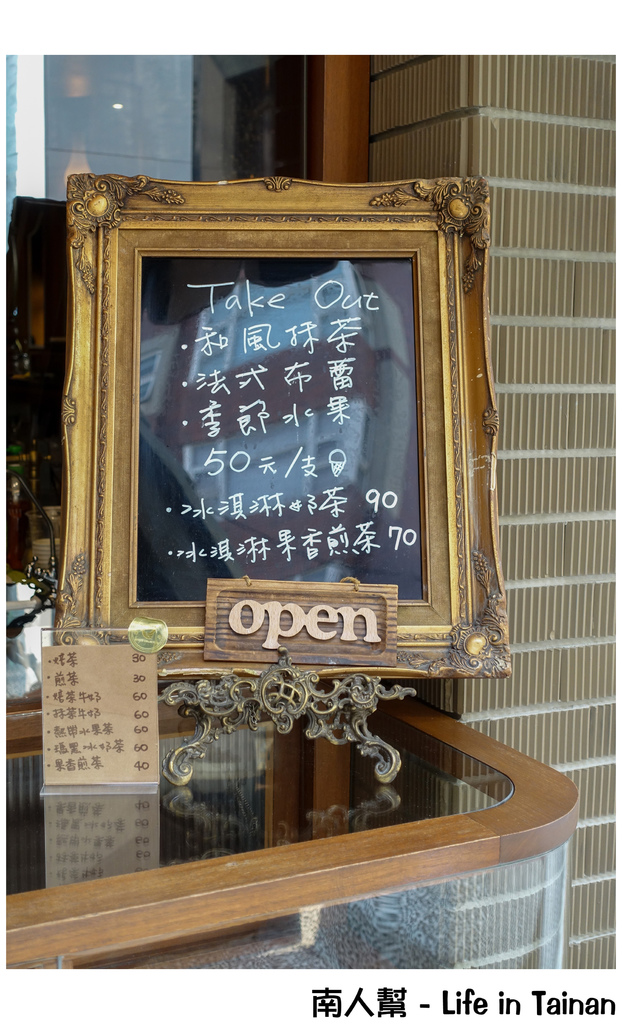 Take Out
·和風抹茶
·法式布蕾
·季節水果
50元/支
·冰淇淋奶茶 90
·冰淇淋果香煎茶 70
open
·烤茶 30
·煎茶 30
·烤茶牛奶 60
·抹茶牛奶 60
·熱帶水果茶 60
·漂黑冰奶茶 60
·果香煎茶 40
南人幫 - Life in Tainan